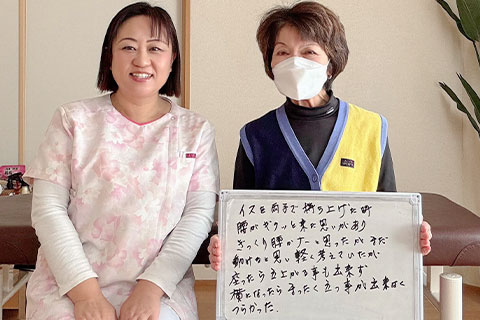 イスを両手で持ち上げた時
腰がギクッと来た思いがあり
ぎっくり腰かナーと思ったがまだ
動けると思い軽く考えていたが
座ったら立上がる事も出来ず
横になったらまったく立つ事が出来なく
つらかった。